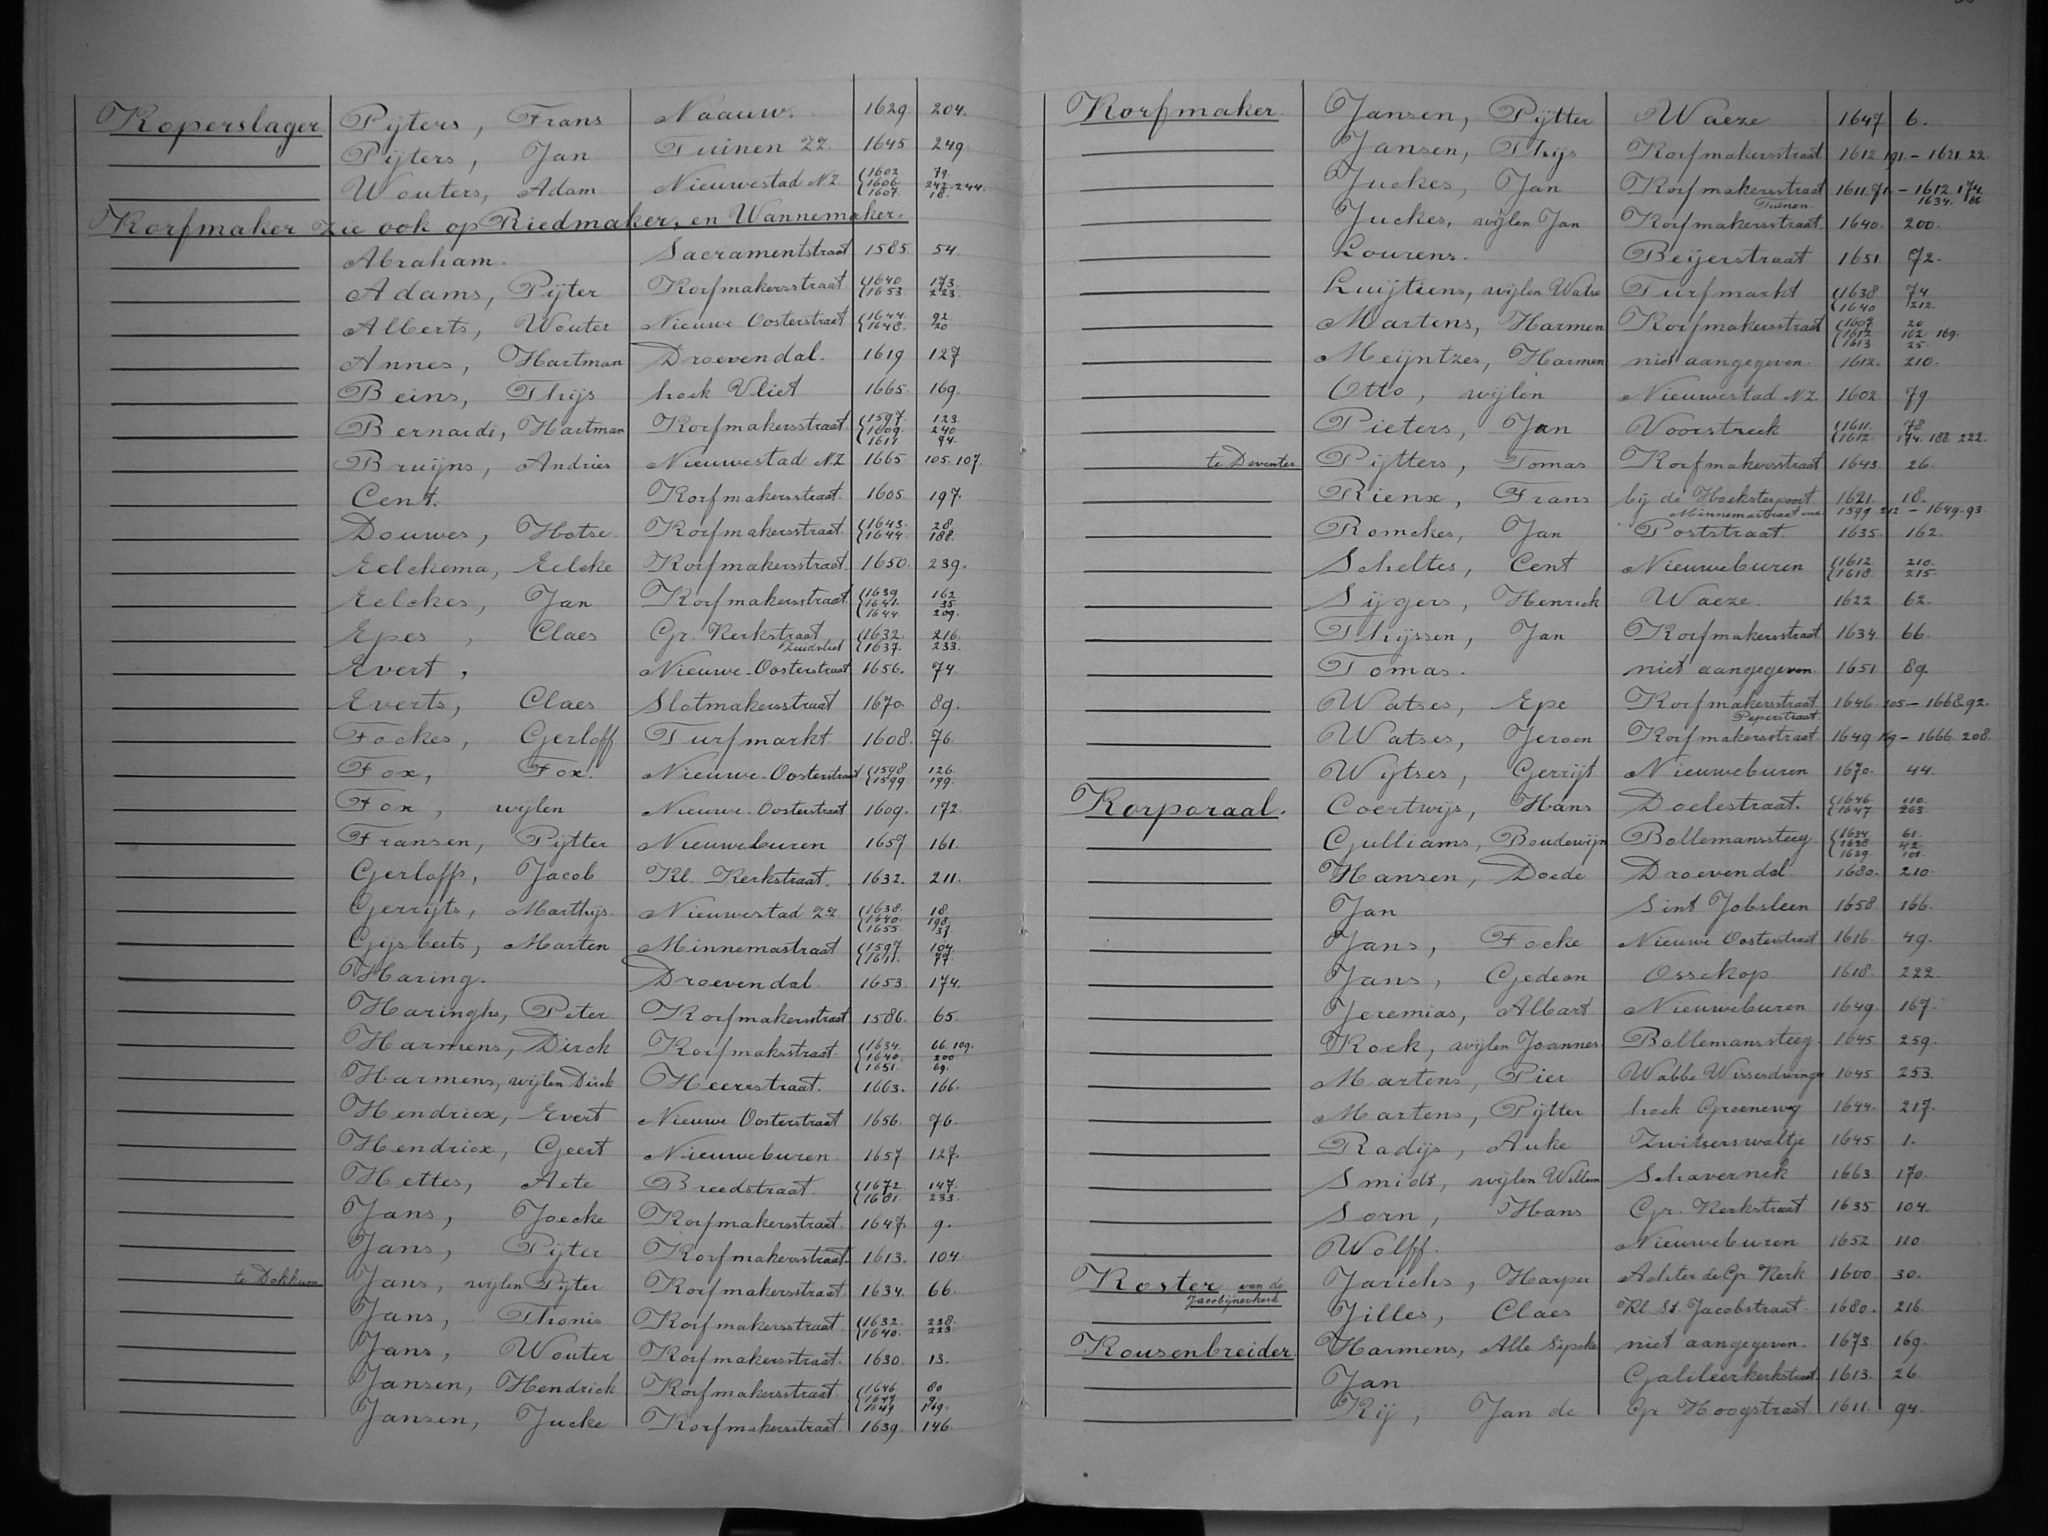 Koperslager Pijters, Frans Naauw. 1629. 204.
Pijters, Jan Tuinen ZZ. 1645 249.
Wouters, Adam Nieuwestad NZ 1602 79. 1606 242.244. 1607 18.
Korfmaker zie ook op Riedmaker, en Wannemaker.
Abraham. Sacramentstraat 1585 54.
Adams, Pijter Korfmakersstraat 1640 173. 1653 223.
Alberts, Wouter Nieuwe Oosterstraat 1644. 92 1648. 20
Annes, Hartman Droevendal. 1619 127.
Beins, Thijs hoek Vliet 1665. 169.
Bernardi, Hartman Korfmakersstraat 1597. 123 1609. 240 1611 94.
Bruijns, Andries Nieuwestad NZ 1665 105.107.
Cent. Korfmakersstraat. 1605 197.
Douwes, Hotse. Korfmakersstraat. 1643. 28. 1644 188.
Eelckema, Eelcke Korfmakersstraat. 1650. 239.
Eelckes, Jan Korfmakersstraat 1639 162 1641. 35 1644 209.
Epes, Claes Gr. Kerkstraat 1632. 216. Zuidvliet 1637. 233.
Evert, Nieuwe-Oosterstraat 1656. 74.
Everts, Claes Slotmakersstraat 1670. 89.
Fockes, Gerloff Turfmarkt 1608. 76.
Fox, Fox. Nieuwe-Oosterstraat 1598 126. 1599 199.
Fox, wijlen Nieuwe-Oosterstraat 1609. 172.
Fransen, Pijtter Nieuweburen 1657 161.
Gerloffs, Jacob Kl. Kerkstraat. 1632. 211.
Gerrijts, Marthijs. Nieuwestad ZZ 1638. 18. 1640. 198. 1655 37
Gijsberts, Marten Minnemastraat 1597 104. 1611. 77.
Haring. Droevendal. 1653. 174.
Haringhs, Peter. Korfmakersstraat 1586. 65.
Harmens, Dirck Korfmakersstraat. 1634. 66.109. 1640. 200 1651. 69.
Harmens, wijlen Dirck Heerestraat. 1663. 166.
Hendricx, Evert Nieuwe Oosterstraat 1656. 76.
Hendricx, Geert Nieuweburen. 1657 127.
Hettes, Aete Breedstraat. 1672. 147. 1681. 233.
Jans, Joecke Korfmakersstraat. 1647. 9.
Jans, Pijter Korfmakersstraat. 1613. 104.
te Dokkum Jans, wijlen Pijter Korfmakersstraat. 1634. 66.
Jans, Thonis Korfmakersstraat. 1632. 238. 1640. 223.
Jans, Wouter Korfmakersstraat. 1630. 13.
Jansen, Hendrick Korfmakersstraat. 1646 80
Jansen, Jucke Korfmakersstraat. 1639. 146.
Korfmaker. Jansen, Pijtter Waeze 1647 6.
Jansen, Thijs Korfmakersstraat 1612 191. - 1621. 22.
Juckes, Jan Korfmakersstraat 1611.71. - 1612. 174.
Tuinen. 1634. 86.
Juckes, wijlen Jan Korfmakersstraat. 1640. 200.
Lourens. Beijerstraat 1651. 72.
Luijtiens, wijlen Watse Turfmarkt 1638 74 1640 212.
Martens, Harmen Korfmakersstraat 1607 20 1612 162. 169. 1613 25.
Meijntzes, Harmen niet aangegeven. 1612. 210.
Otto, wijlen Nieuwestad NZ. 1602 79
Pieters, Jan Voorstreek 1611. 78. 1612. 174. 188. 222.
te Deventer Pijtters, Tomas Korfmakersstraat 1643. 26.
Rienx, Frans bij de Hoeksterpoort 1621. 18.
Minnemastraat 1599 212 - 1649.93.
Romckes, Jan Poststraat. 1635. 162.
Scheltes, Cent Nieuweburen 1612 210. 1618. 215.
Sijgers, Henrick Waeze. 1622. 62.
Thijssen, Jan Korfmakersstraat 1634. 66.
Tomas. niet aangegeven. 1651 89.
Watses, Epe Korfmakersstraat 1646. 105 - 1668.92.
Peperstraat.
Watses, Jeroen Korfmakersstraat 1649 - 1666. 208.
Wijtses, Gerrijt Nieuweburen 1670. 44.
Korporaal. Coertwijs, Hans Doelestraat. 1646 110. 1647 263.
Gulliams, Boudewijn Bollemanssteeg. 1634. 61. 1638. 42. 1639 101.
Hansen, Doede Droevendal. 1680. 210.
Jan Sint Jobsleen 1658 166.
Jans, Focke Nieuwe Oosterstraat 1616 49.
Jans, Gedeon Ossekop. 1618. 222.
Jeremias, Albart Nieuweburen 1649. 167.
Kock, wijlen Joannes Bollemanssteeg. 1645 259.
Martens, Pier Wabbe Wissesdwinger 1645 253.
Martens, Pijtter hoek Groeneweg 1644. 217.
Radijs, Auke Zwitserswaltje 1645 1.
Smidt, wijlen Willem Schavernek 1663 170.
Sorn, Hans Gr. Kerkstraat 1635 104.
Wolff. Nieuweburen 1652 110.
Koster van de Jarichs, Harper Achter de Gr. Kerk 1600 30.
Jacobijnerkerk Jilles, Claes Kl. St. Jacobstraat. 1680. 216.
Kousenbreider Harmens, Alle Sipcke niet aangegeven. 1673. 169.
Jan Galileërkerkstraat 1613. 26
Rij, Jan de Gr. Hoogstraat 1611. 94.